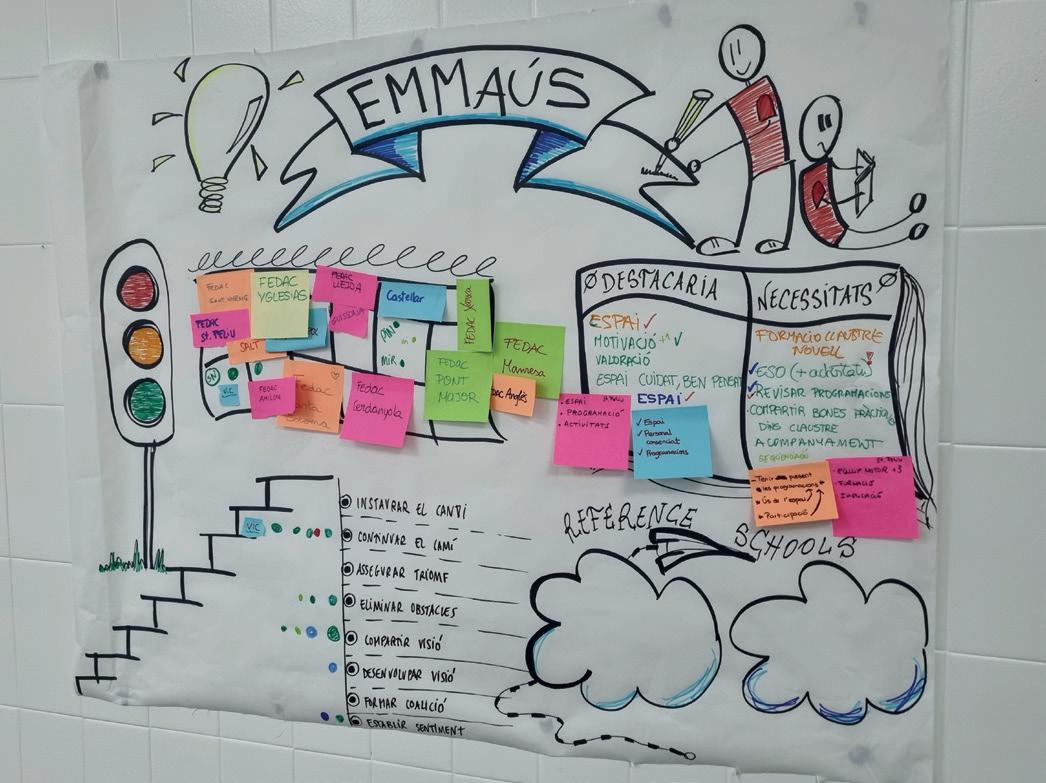 EMMAÚS
FEDAC
SANT NARCÍS
FEDAC
YGLESIAS
FEDAC
LLEIDA
GUISSONA
Castellar
FEDAC Xirinxa
FEDAC
ST. FELIU
SALT
CAN
MIR
FEDAC
Manresa
VIC
FEDAC
AMÍLCAR
Fedac
Santa
Coloma
Fedac
Cerdanyola
FEDAC
PONT
MAJOR
FEDAC Anglès
DESTACARIA
ESPAI ✓
MOTIVACIÓ +1 ✓
VALORACIÓ
ESPAI CUIDAT, BEN PENSAT
ESPAI ✓
St. Feliu
• ESPAI
• PROGRAMACIÓ
• ACTIVITATS
✓ Espai
✓ Personal
conscenciat
✓ Programacions
NECESSITATS
FORMACIÓ CLAUSTRE
NOVELL
ESO (+ activitats)
REVISAR PROGRAMACIONS
COMPARTIR BONES PRÀCTIQUES
DINS CLAUSTRE
ACOMPANYAMENT
SEQÜENCIACIÓ
- Tenir present
les programacions
• Ús de l'espai
• Participació
St. Feliu
• EQUIP MOTOR +3
• FORMACIÓ
• IMPLICACIÓ
VIC
INSTAURAR EL CANVI
CONTINUAR EL CAMÍ
ASSEGURAR TRIOMF
ELIMINAR OBSTACLES
COMPARTIR VISIÓ
DESENVOLUPAR VISIÓ
FORMAR COALICIÓ
ESTABLIR SENTIMENT
REFERENCE
SCHOOLS